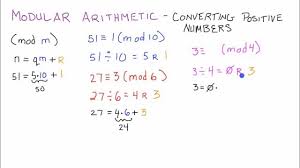 MODULAR ARITHMETIC - CONVERTING POSITIVE NUMBERS
(mod m)
n = qm + r
51 = 5·10 + 1
50
51 ≡ 1 (mod 10)
51 ÷ 10 = 5 R 1
27 ≡ 3 (mod 6)
27 ÷ 6 = 4 R 3
27 = 4·6 + 3
24
3 ≡ (mod 4)
3 ÷ 4 = 0 R 3
3 = 0·